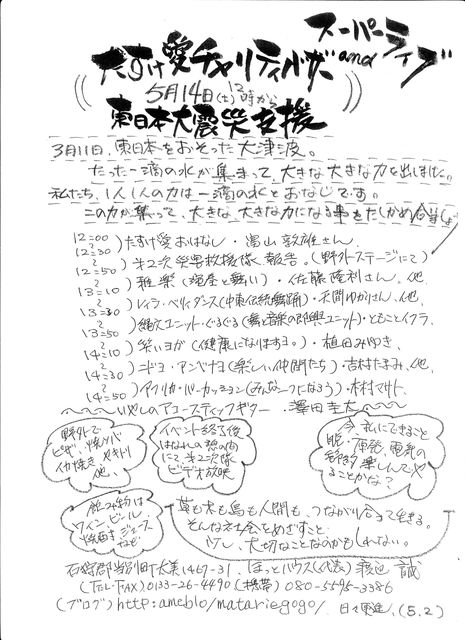 たすけ愛チャリティバザー and スーパーライブ
5月14日(土)12時から
東日本大震災支援
3月11日、東日本をおそった大津波。
たった一滴の水が集まって、大きな大きな力を出しました。
私たち、1人1人の力は一滴の水とおなじです。
この力が集って、大きな、大きな力になる事をたしかめ合いましょう
12:00〜12:30 たすけ愛おはなし・畠山敦雄さん
12:30〜12:50 第2次災害救援隊報告。(野外ステージにて)
12:50〜13:10 雅楽(演奏と舞い)・佐藤隆利さん、他
13:10〜13:30 レイラ・ベリィダンス(中東伝統舞踊)・天間ゆかさん、他
13:30〜13:50 縄文ユニット・ぐるぐる(舞と音楽の即興ユニット)・ともことイクラ
13:50〜14:10 笑いヨガ(健康になりますヨ。)・植田みゆき
14:10〜14:30 ニドヨ・アンベナヨ(楽しい仲間たち)・吉村たまみ、他
14:30〜14:50 アフリカ・パーカッション(みんな一つになろう)・木村マサト
いやしのアコースティックギター 澤田圭太
野外で
ピザ、焼パン
イカ焼き、ヤキトリ
他、
イベント終了後
はなれの憩の間
にて第2次隊
ビデオ放映
今、私にできること
脱・原発、電気の
節約楽しんでや
ることかな?
飲み物は
ワイン、ビール
焼酎、ジュース
など
草も木も鳥も人間も、つながり合って生きる。
そんな社会をめざすこと
が、大切なことなのかもしれない。
石狩郡当別町太美1467-31 ほっとハウス(代表)渡辺 誠
(TEL・FAX)0133-26-4490(携帯)080-5595-3386
(ブログ)http:ameblo/matariegogo/ 日々更進。(5.2)